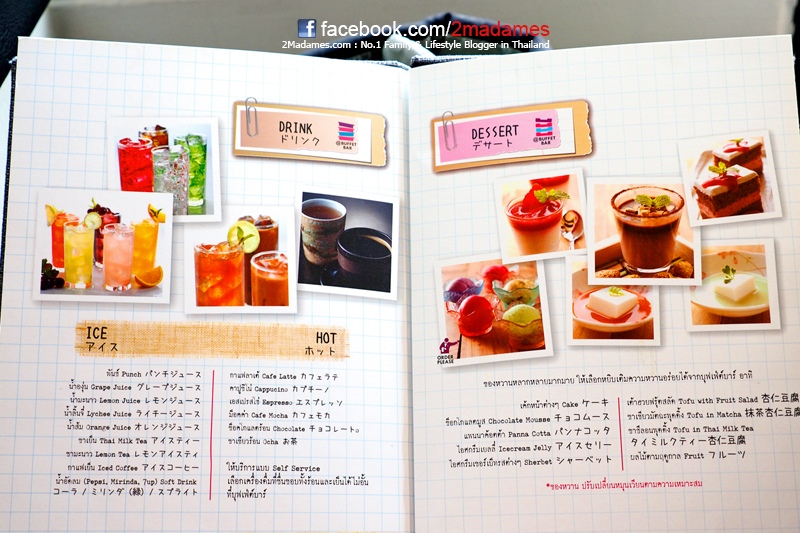 facebook.com/2madames
2Madames.com : No.1 Family & Lifestyle Blogger in Thailand
DRINK
ドリンク
@BUFFET
BAR
ICE
アイス
HOT
ホット
พันช์ Punch パンチジュース
น้ำองุ่น Grape Juice グレープジュース
น้ำมะนาว Lemon Juice レモンジュース
น้ำลิ้นจี่ Lychee Juice ライチージュース
น้ำส้ม Orange Juice オレンジジュース
ชาเย็น Thai Milk Tea アイスティー
ชามะนาว Lemon Tea レモンアイスティ
กาแฟเย็น Iced Coffee アイスコーヒー
น้ำอัดลม (Pepsi, Mirinda, 7up) Soft Drink
コーラ / ミリンダ (緑) / スプライト
กาแฟลาเต้ Cafe Latte カフェラテ
คาปูชิโน่ Cappucino カプチーノ
เอสเปรสโซ่ Espresso エスプレッソ
ม็อคค่า Cafe Mocha カフェモカ
ช็อกโกแลตร้อน Chocolate チョコレート。
ชาเขียวร้อน Ocha お茶
ให้บริการแบบ Self Service
เลือกเครื่องดื่มที่ชื่นชอบทั้งร้อนและเย็นได้ไม่อั้น
ที่บุฟเฟ่ต์บาร์
DESSERT
デザート
@BUFFET
BAR
ORDER
PLEASE
ของหวานหลากหลายมากมาย ให้เลือกหยิบเติมความหวานอร่อยได้จากบุฟเฟ่ต์บาร์ อาทิ
เค้กหน้าต่างๆ Cake ケーキ
ช็อกโกแลตมูส Chocolate Mousse チョコムース
แพนนาค็อตต้า Panna Cotta パンナコッタ
ไอศกรีมเยลลี่ Icecream Jelly アイスセリー
ไอศกรีมเชอร์เบ็ทรสต่างๆ Sherbet シャーベット
เต้าฮวยฟรุ๊ตสลัด Tofu with Fruit Salad 杏仁豆腐
ชาเขียวมัทฉะพุดดิ้ง Tofu in Matcha 抹茶杏仁豆腐
ชาซีลอนพุดดิ้ง Tofu in Thai Milk Tea
タイミルクティー杏仁豆腐
ผลไม้ตามฤดูกาล Fruit フルーツ
*ของหวาน ปรับเปลี่ยนหมุนเวียนตามความเหมาะสม